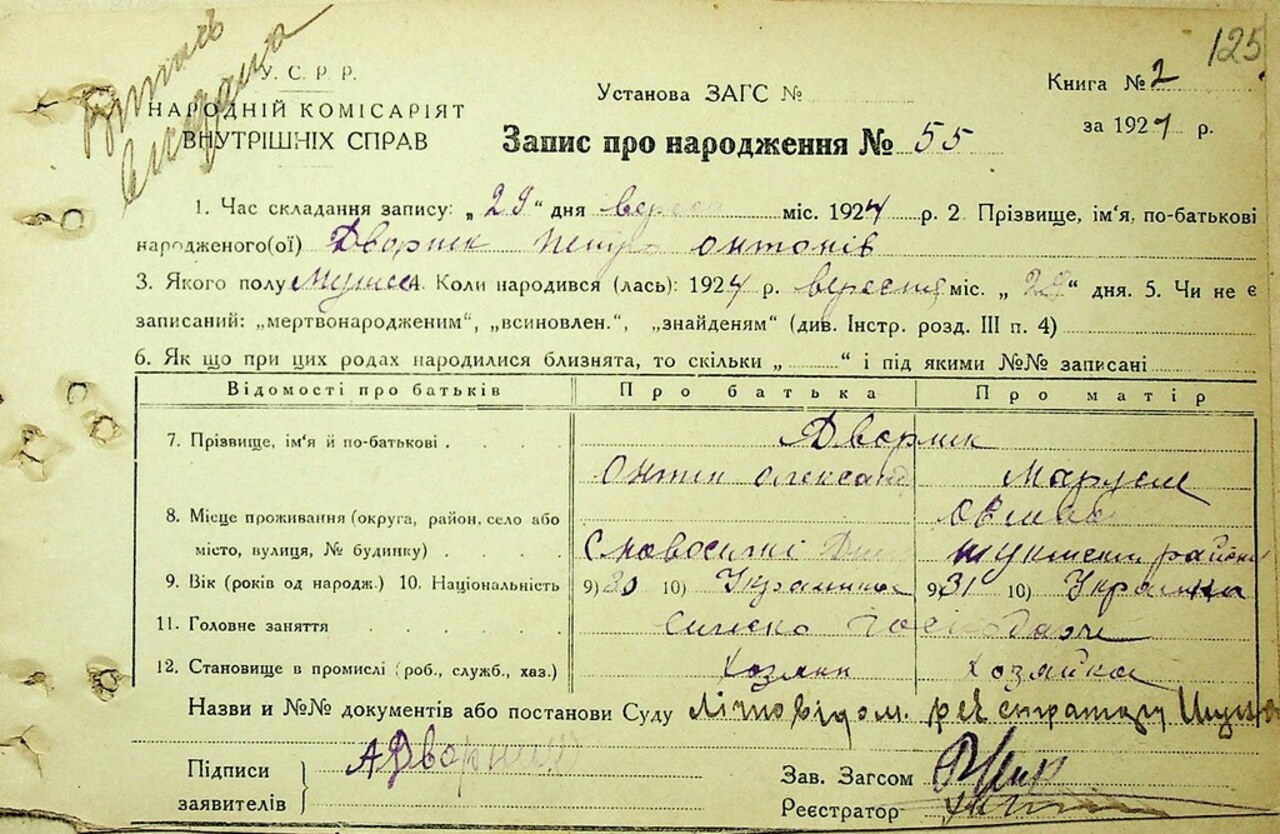 125
У. С. Р. Р.
НАРОДНІЙ КОМІСАРІЯТ
ВНУТРІШНІХ СПРАВ
Установа ЗАГС №
Книга № 2
за 1924 р.
Запис про народження № 55
1. Час складання запису: „ 29 “ дня вересня міс. 1924 р. 2. Прізвище, ім‘я, по-батькові
народженого(ої) Дворник Петро Онтонів
3. Якого полу 4. Коли народився (лась): 1924 р. вересня міс. „ 29 “ дня. 5. Чи не є
записаний: „мертвонародженим“, „всиновлен.“, „знайденям“ (див. Інстр. розд. III п. 4)
6. Як що при цих родах народилися близнята, то скільки „ “ і під якими №№ записані
Відомості про батьків Про батька Про матір
7. Прізвище, ім‘я й по-батькові Дворник
Онтин Олександ Маруся
8. Місце проживання (округа, район, село або
місто, вулиця, № будинку) района
9. Вік (років од народж.) 10. Національність 9) 30 10) 9) 31 10)
11. Головне заняття Сильско Господарче
12. Становище в промислі (роб., служб., хаз.) Хозяин Хозяйка
Назви и №№ документів або постанови Суду лічно відом. реєстратору
Підписи
заявителів А Дворник
Зав. Загсом
Реєстратор